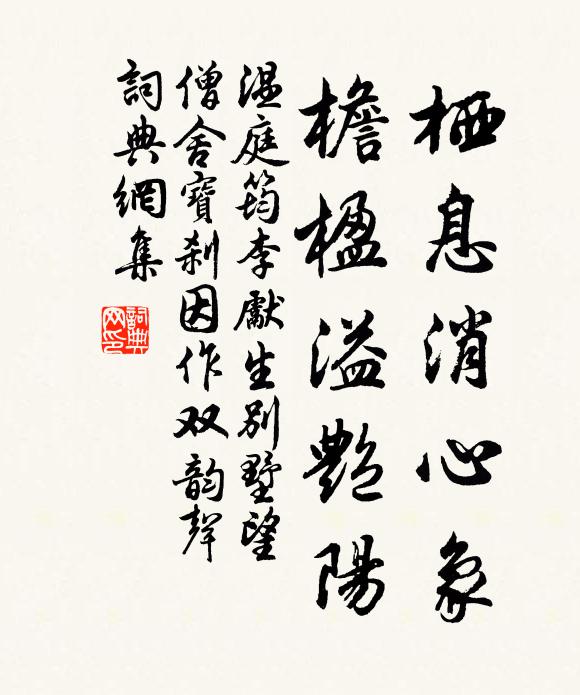 栖息消心象
檐楹溢艷陽
温庭筠李獻生別墅望
僧舍寶刹因作双韵聲
詞典網集
詞典网印